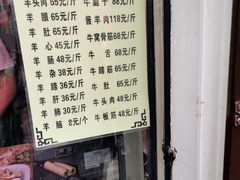 牛头肉65元/斤 牛鞭子 88元/斤
羊 眼 65元/斤 酱羊肉118元/斤
羊 肚 65元/斤 牛窝骨筋68元/斤
羊 心 45元/斤 牛 舌 68元/斤
羊 肠 48元/斤 牛蹄筋 65元/斤
羊 杂 38元/斤 牛 肚 65元/斤
羊 蹄 36元/斤 牛头肉 48元/斤
羊 肝 36元/斤 牛板筋 48元/斤
羊 肺 30元/斤
羊 脑 8元/个